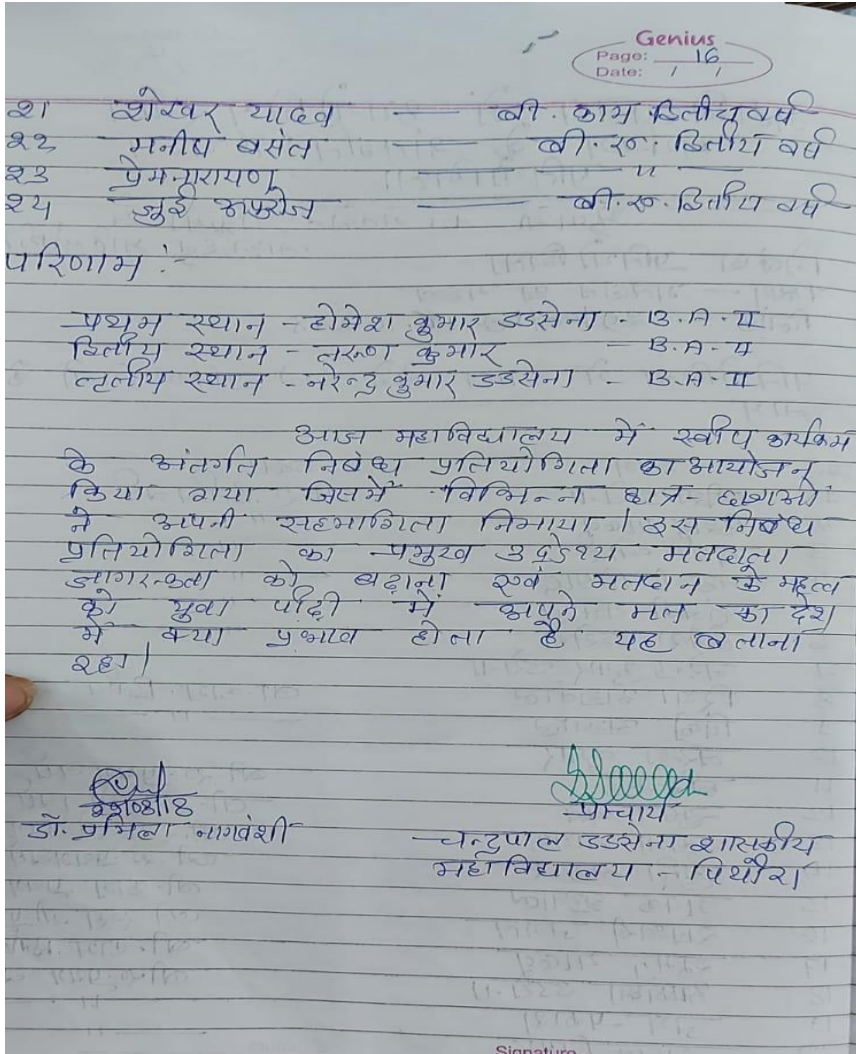 Genius
Page: 16
Date: / /
२१ शेखर यादव — बी. काम द्वितीय वर्ष
२२ मनीष बसंत — बी.ए. द्वितीय वर्ष
२३ प्रेमनारायण — " —
२४ जुई अफरोज — बी.ए. द्वितीय वर्ष
परिणाम :-
प्रथम स्थान - होमेश कुमार डडसेना - B.A-II
द्वितीय स्थान - तरूण कुमार - B.A-II
तृतीय स्थान - नरेन्द्र कुमार डडसेना - B.A-II
आज महाविद्यालय में स्वीप कार्यक्रम
के अंतर्गत निबंध प्रतियोगिता का आयोजन
किया गया जिसमें विभिन्न छात्र-छात्राओं
ने अपनी सहभागिता निभाया। इस निबंध
प्रतियोगिता का प्रमुख उद्देश्य मतदाता
जागरूकता को बढ़ाना एवं मतदान के महत्व
को युवा पीढ़ी में अपने मत का देश
में क्या प्रभाव होता है यह बताना
रहा।
डॉ. प्रमिला नागवंशी
प्राचार्य
चन्द्रपाल डडसेना शासकीय
महाविद्यालय - पिथौरा
Signature